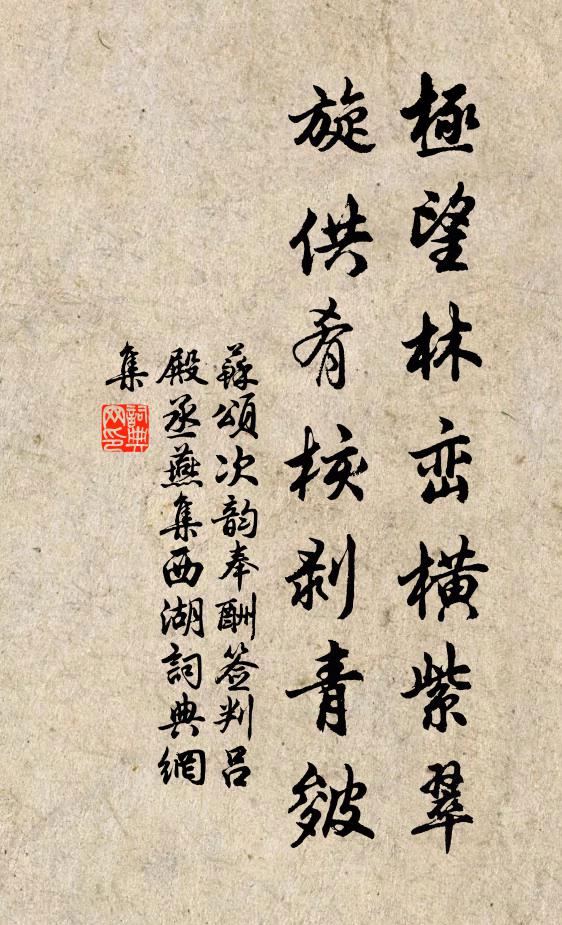 極望林峦橫紫翠
旋供肴核剥青皴
蘇頌次韵奉酬签判吕
殿丞燕集西湖詞典網
集
詞典
网印